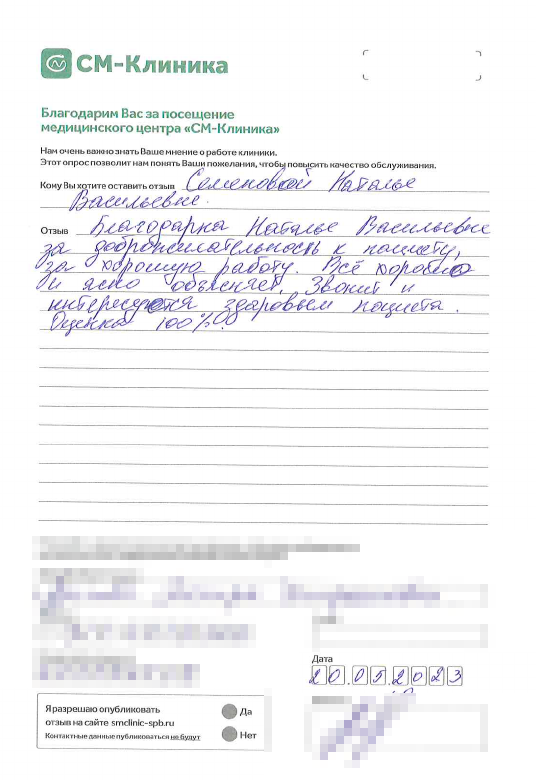 СМ-Клиника
Благодарим Вас за посещение
медицинского центра «СМ-Клиника»
Нам очень важно знать Ваше мнение о работе клиники.
Этот опрос позволит нам понять Ваши пожелания, чтобы повысить качество обслуживания.
Кому Вы хотите оставить отзыв Семеновой Наталье
Васильевне.
Отзыв Благодарна Наталье Васильевне
за доброжелательность к пациету,
за хорошую работу. Всё хорошо
и ясно объеняет, Звонит и
интересуется здаровьем пациета.
Оценка 100%
Дата
20.05.2023
Я разрешаю опубликовать
отзыв на сайте smclinic-spb.ru
Контактные данные публиковаться не будут
Да
Нет